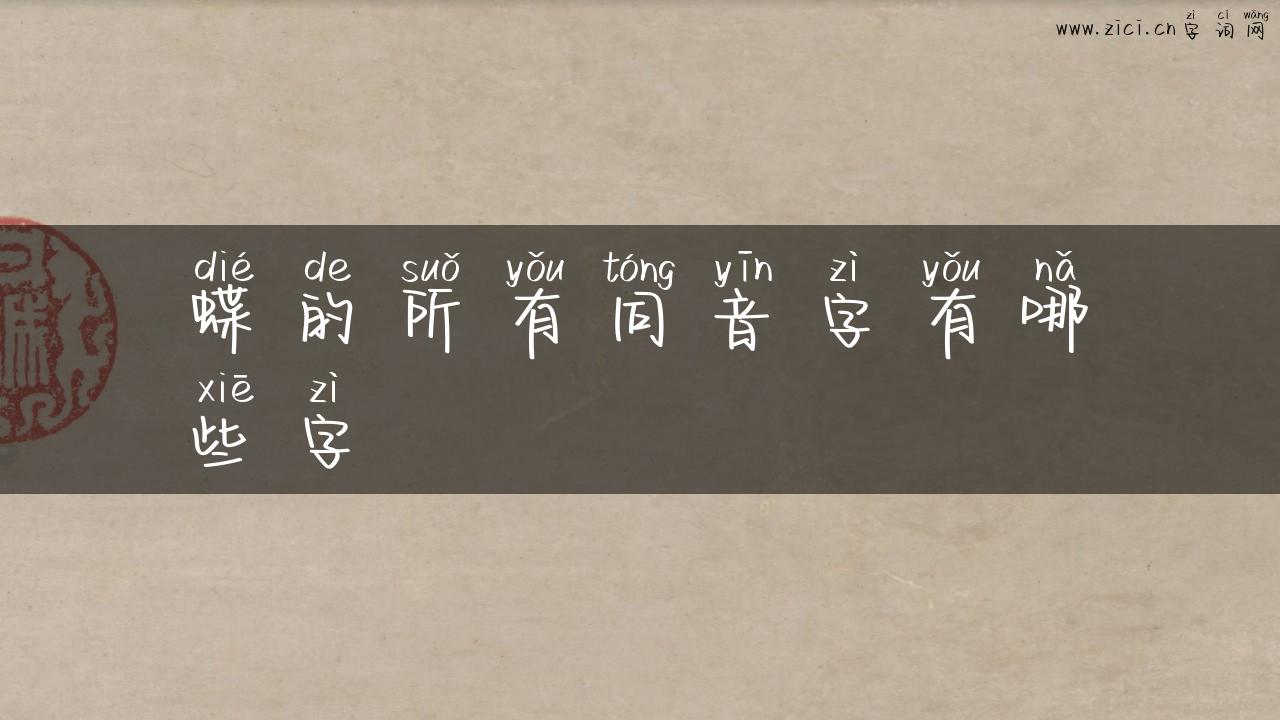 zì cí wǎng
www.zici.cn 字 词 网
dié de suǒ yǒu tóng yīn zì yǒu nǎ
蝶 的 所 有 同 音 字 有 哪
xiē zì
些 字